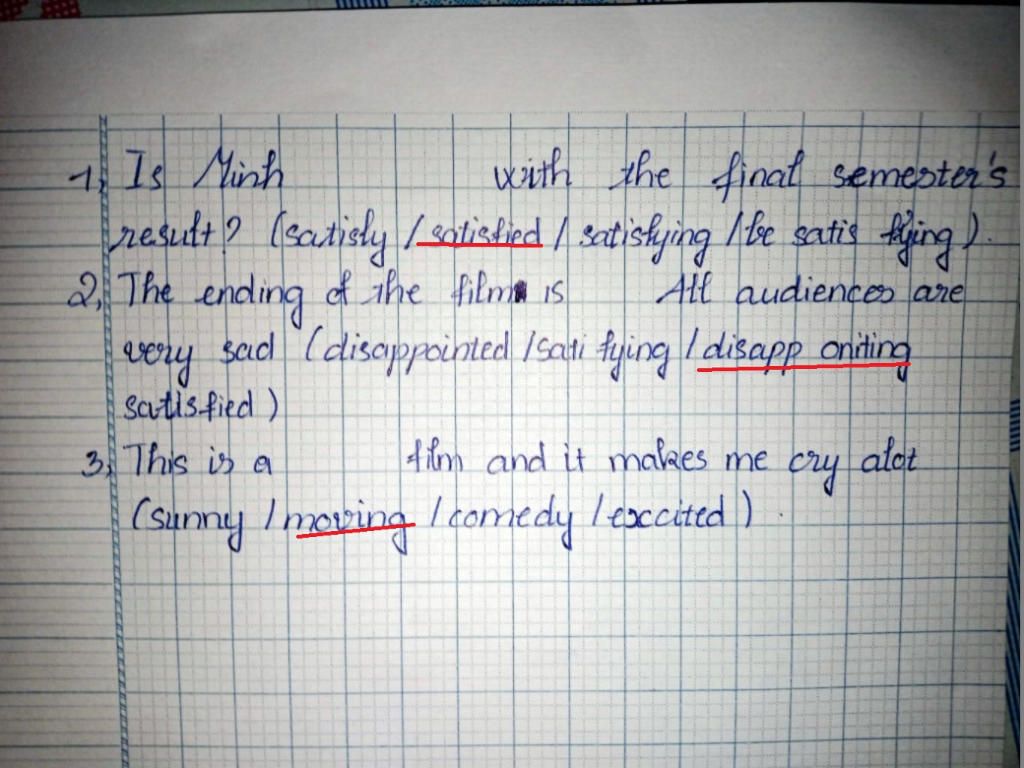 1, Is Minh with the final semester's
result? (satisfy / satisfied / satisfying / be satis fying).
2, The ending of the film is All audiences are
very sad (disappointed / sati fying / disapp oniting
satisfied)
3, This is a film and it makes me cry alot
(sunny / moving / comedy / exccited).